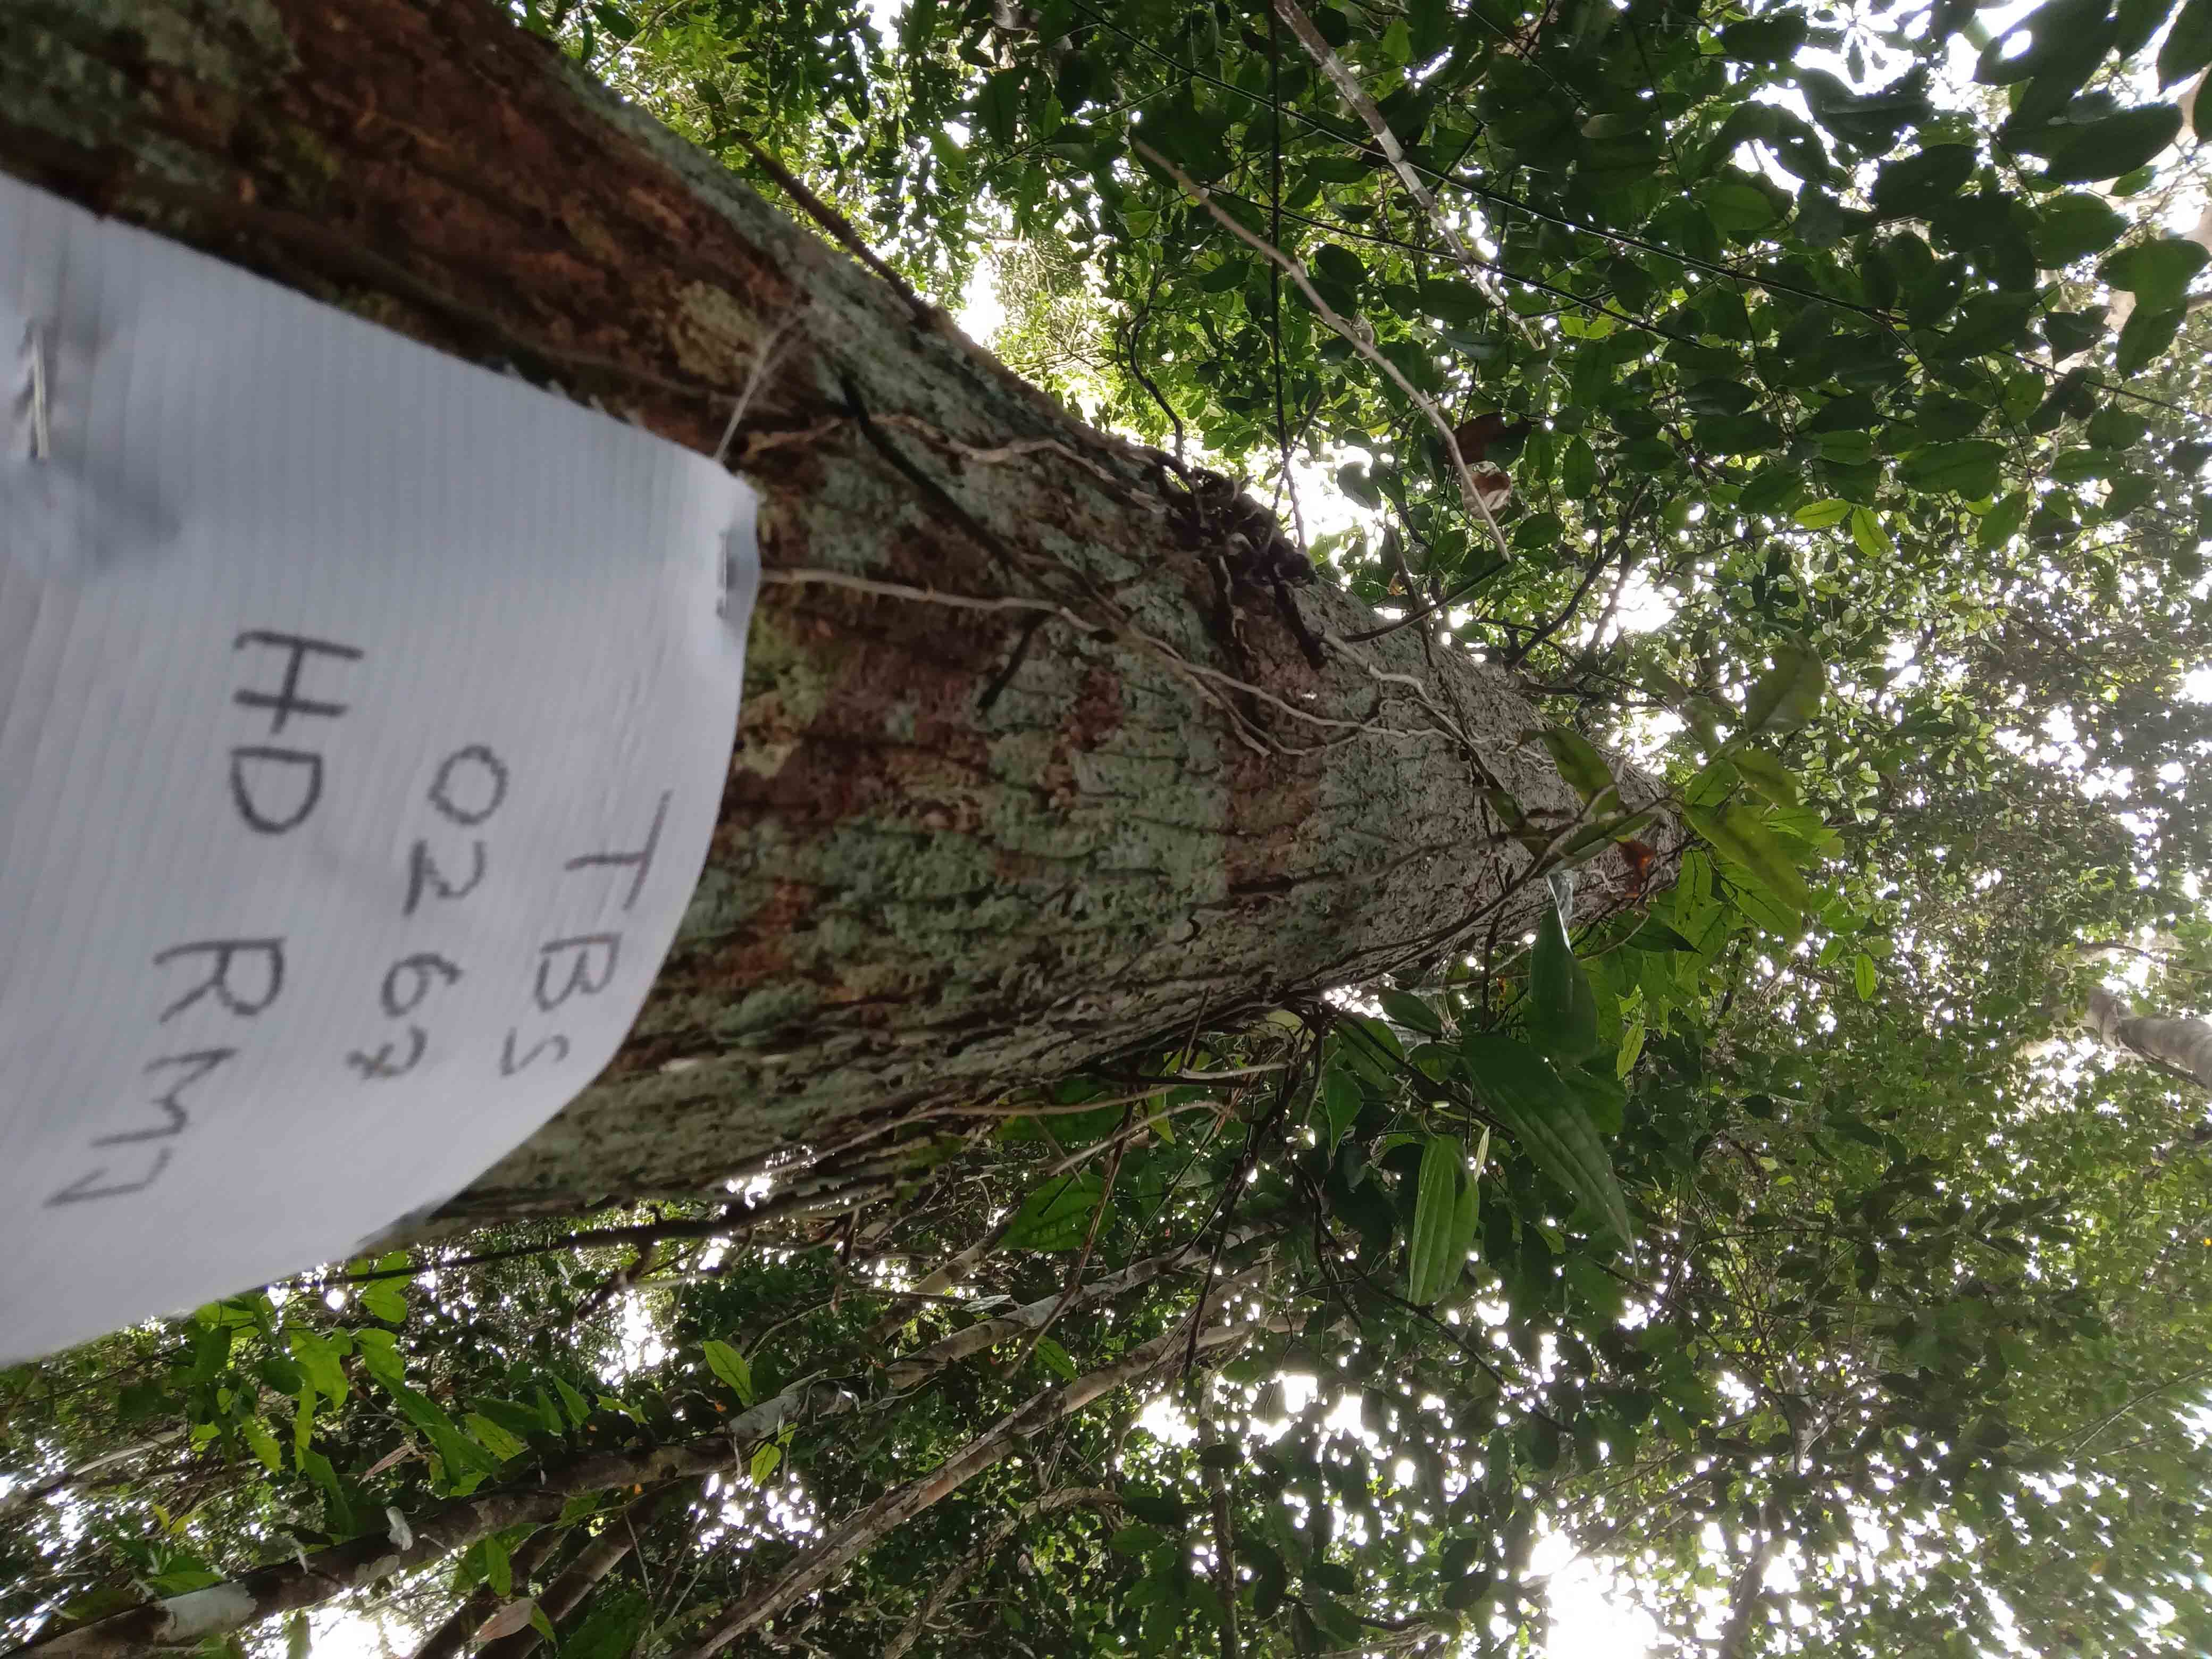 TBS
0267
HD RM7